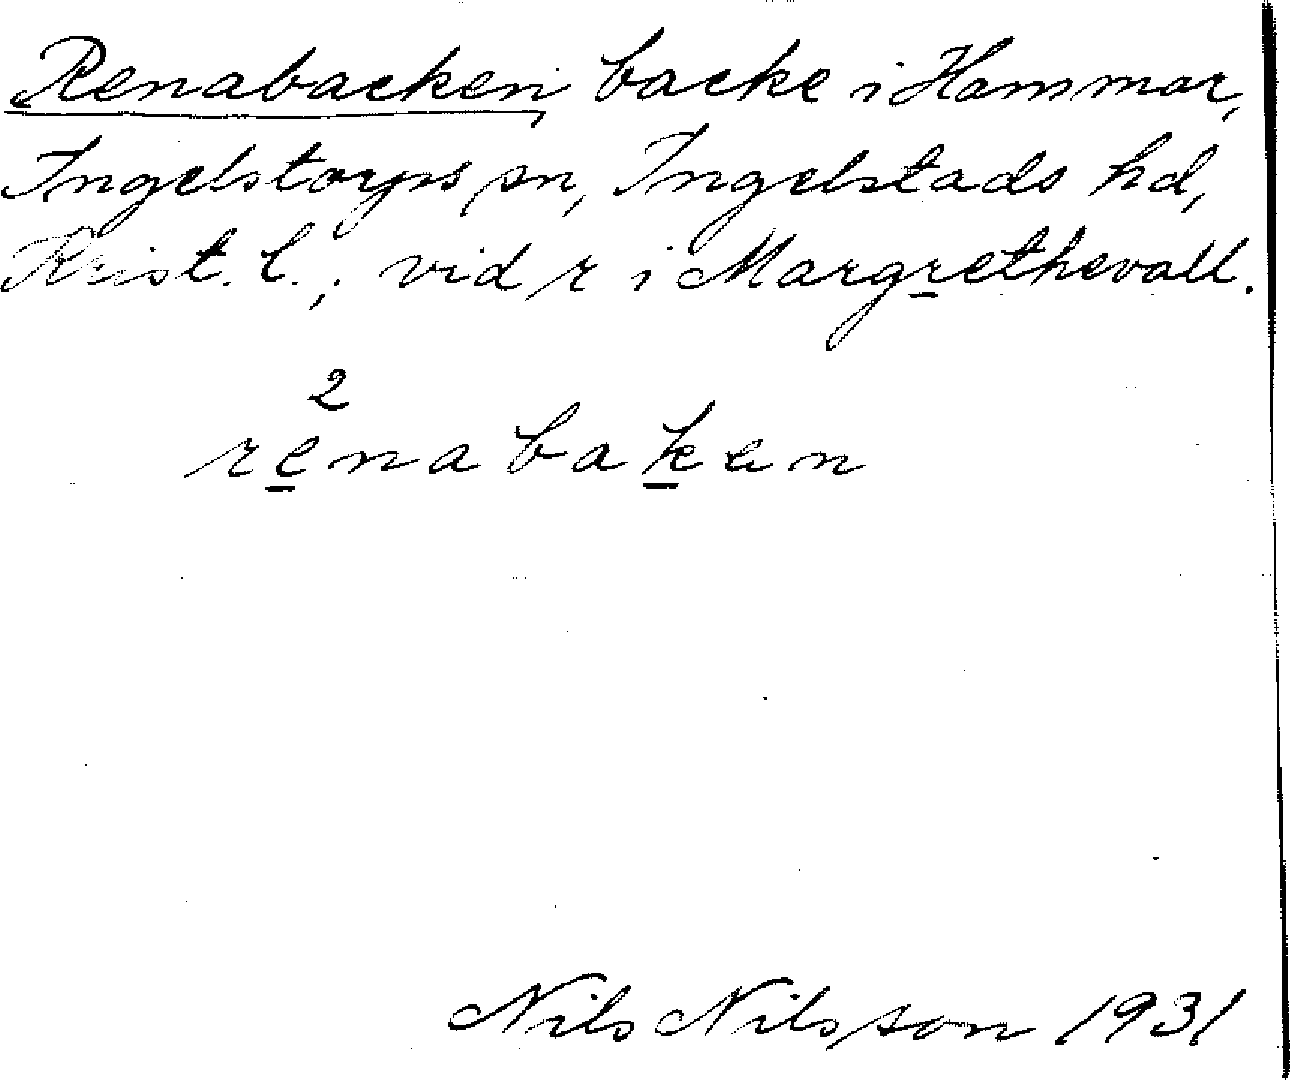 Renabacken, backe i Hammar,
Ingelstorps sn, Ingelstads hd,
Krist. l.; vid r i Margrethevall.
2
renabakæn
Nils Nilsson 1931